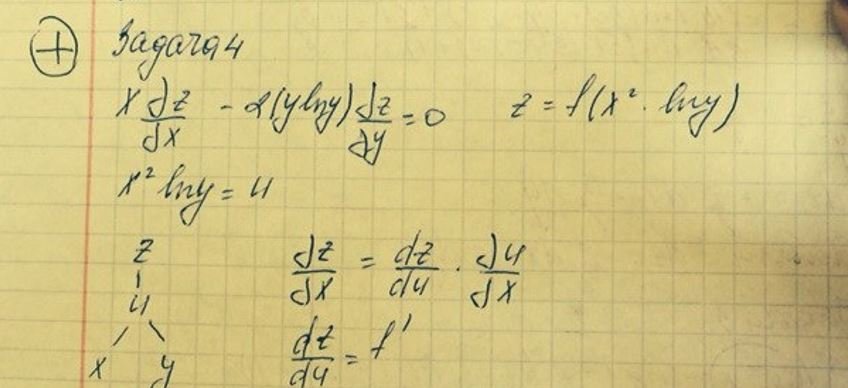 + Задача 4
x ∂z/∂x - 2(y lny) ∂z/∂y = 0 z = f(x² · lny)
x² lny = u
z
u
x y
∂z/∂x = dz/du · ∂u/∂x
dz/du = f'